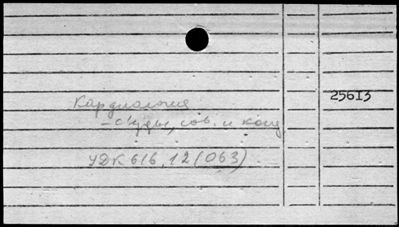 Кардиология
25613
– съезды, сов. и конф
УДК 616.12 (063)